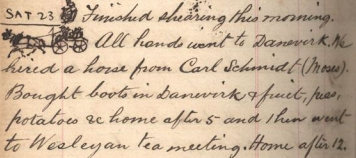 SAT 23 Finished shearing this morning.
All hands went to Danevirk. We
hired a horse from Carl Schmidt (Moses).
Bought boots in Danevirk & fruit, peas,
potatoes &c home after 5 and then went
to Wesleyan tea meeting. Home after 12.